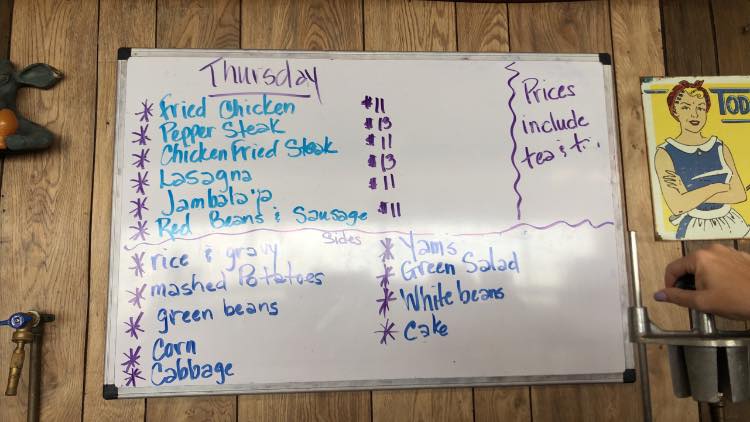 Thursday
* Fried Chicken $11
* Pepper Steak $13
* Chicken Fried Steak $11
* Lasagna $13
* Jambalaya $11
* Red Beans & Sausage $11
Prices
include
tea &
Sides
* rice & gravy
* mashed Potatoes
* green beans
* Corn
* Cabbage
* Yams
* Green Salad
* White beans
* Cake
TOD